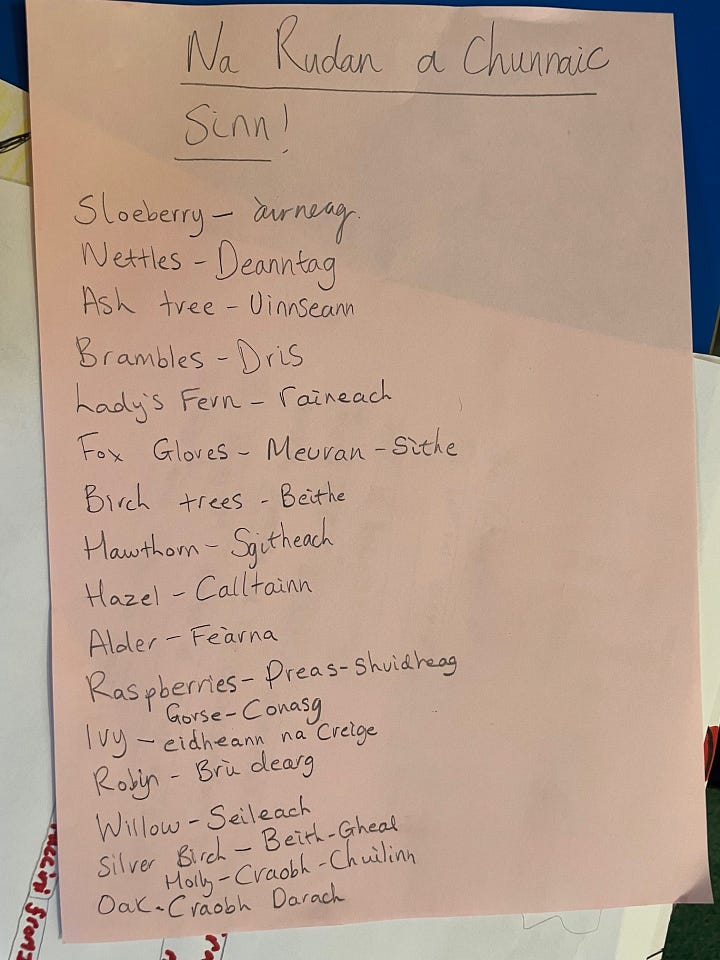 Na Rudan a Chunnaic
Sinn!
Sloeberry - àirneag.
Nettles - Deanntag
Ash tree - Uinnseann
Brambles - Dris
Lady's Fern - raineach
Fox Gloves - Meuran - Sìthe
Birch trees - Beithe
Hawthorn - Sgitheach
Hazel - Calltainn
Alder - Feàrna
Raspberries - Preas-shuidheag
Gorse - Conasg
Ivy - eidheann na Creige
Robin - Brù dearg
Willow - Seileach
Silver Birch - Beith-Gheal
Holly - Craobh-Chuilinn
Oak - Craobh Darach